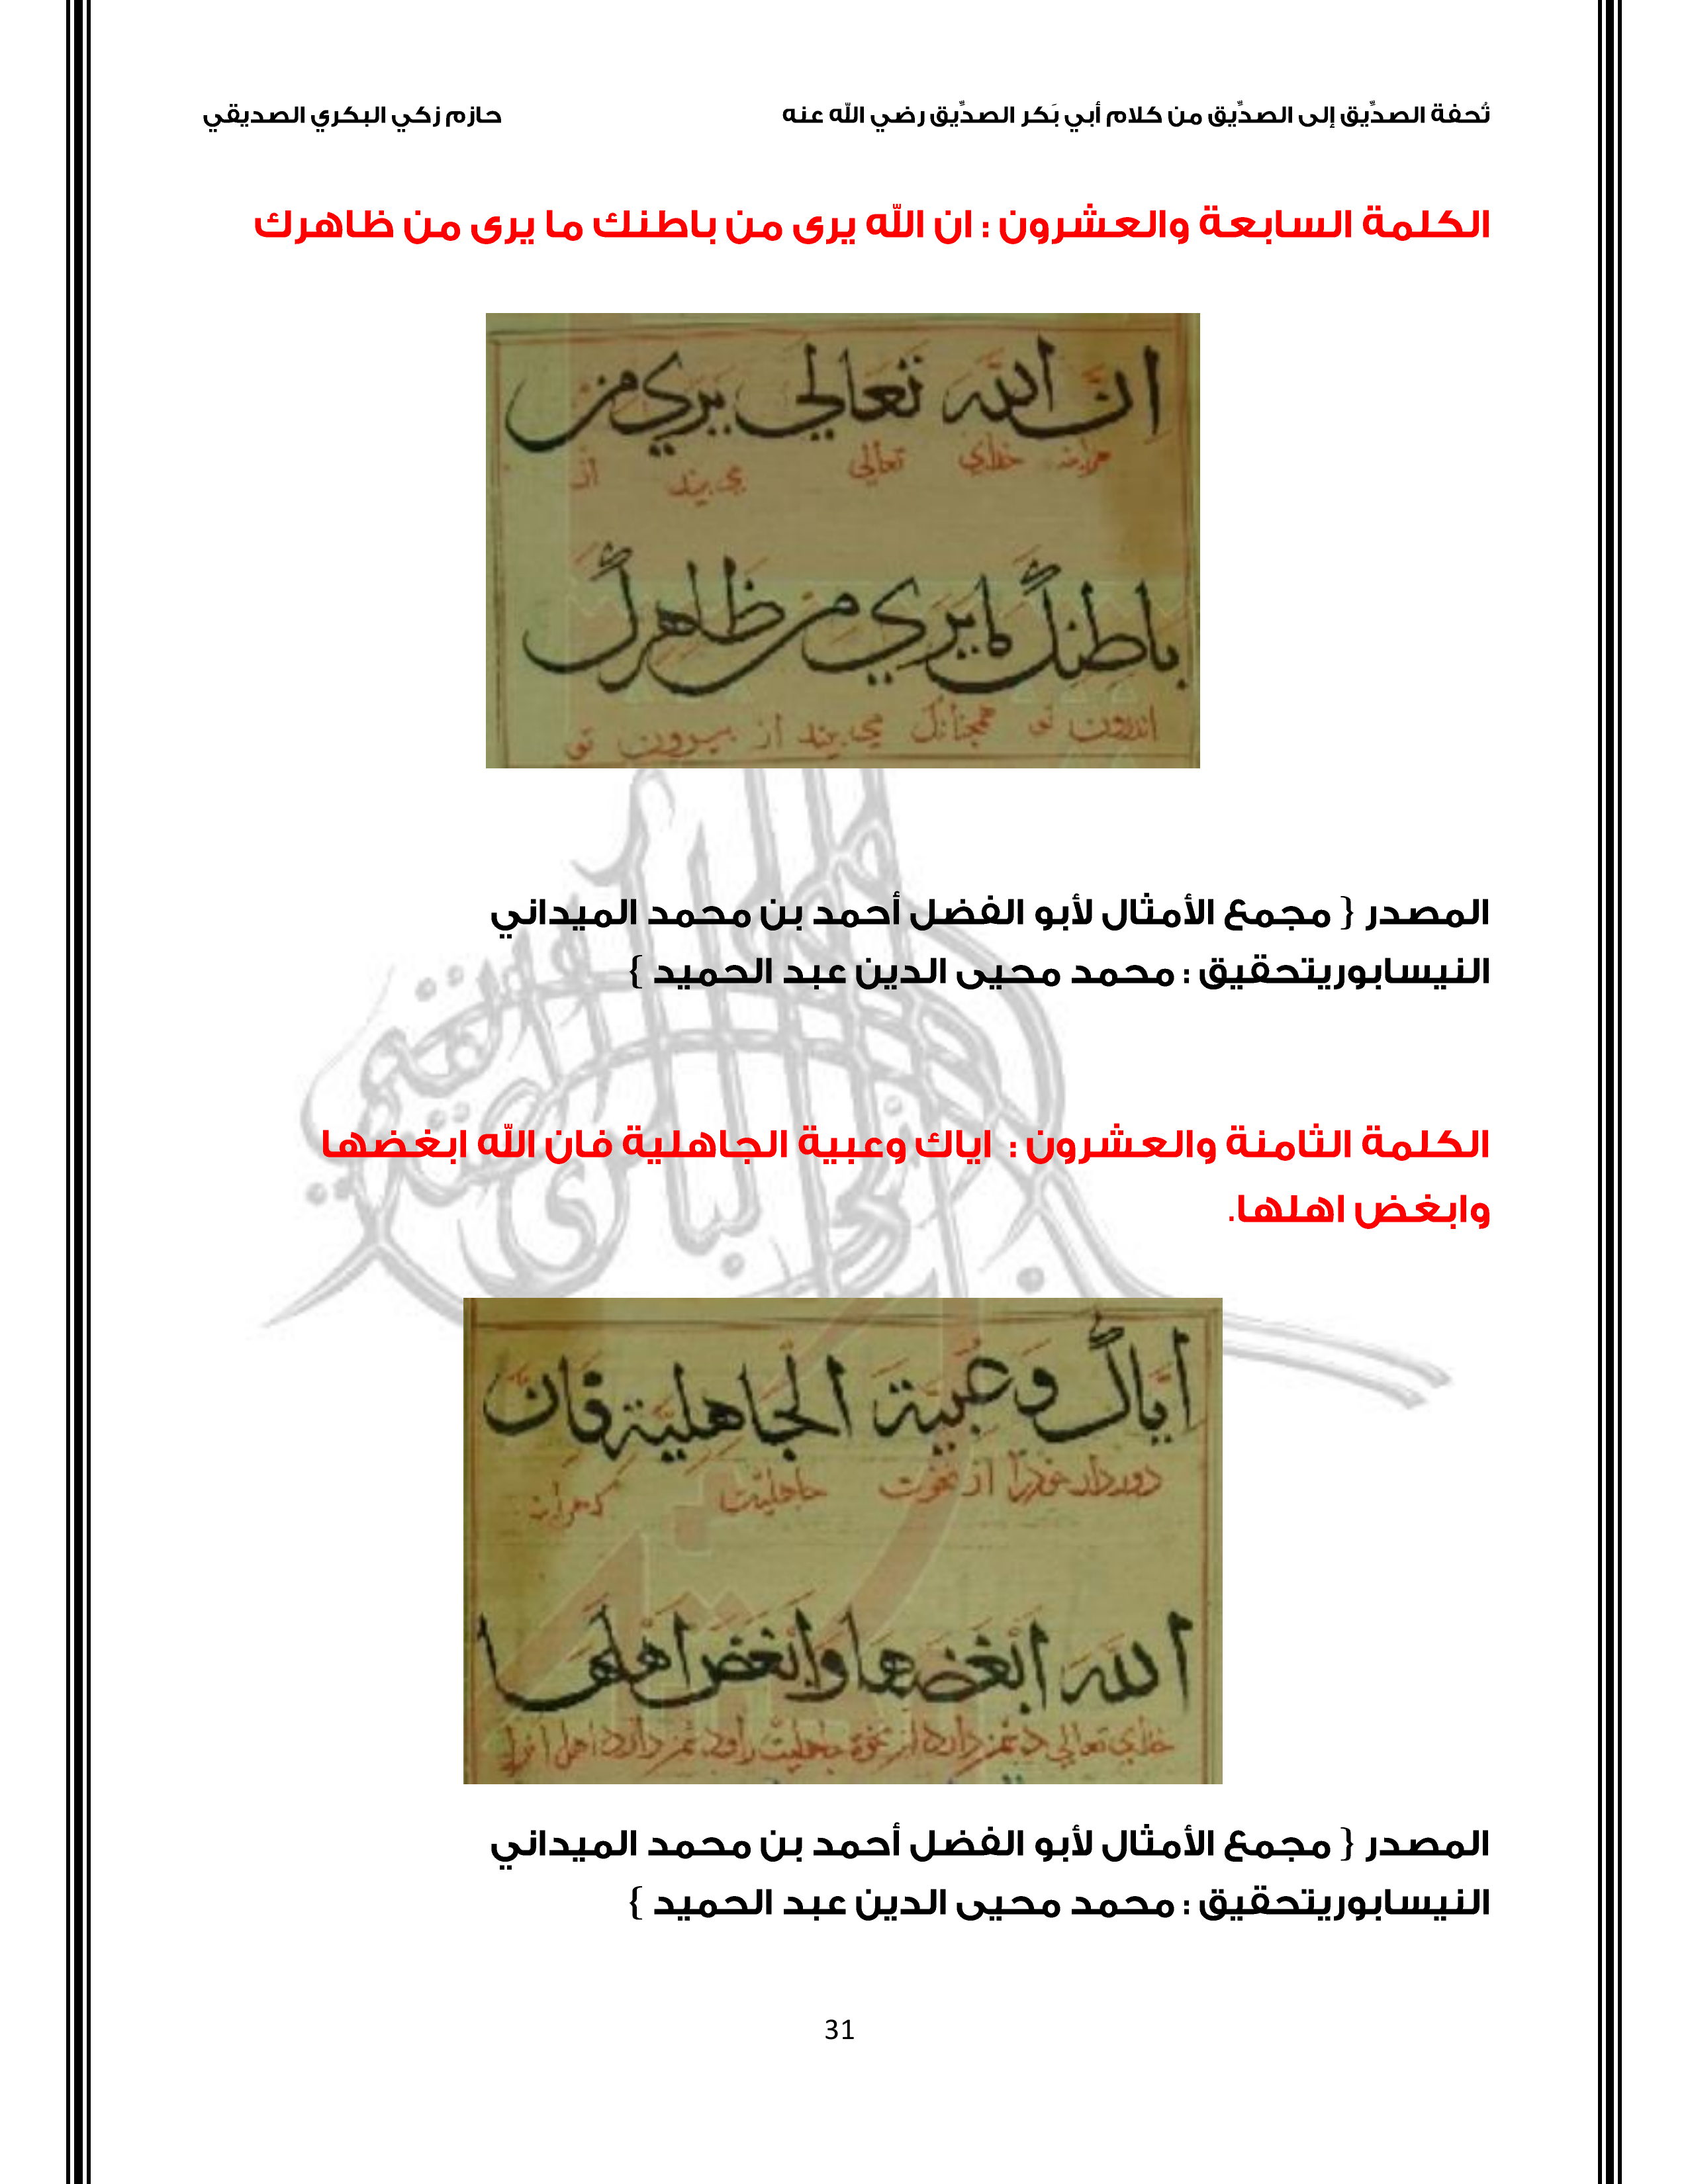 تُحفة الصدِّيق إلى الصدِّيق من كلام أبي بَكر الصدِّيق رضي الله عنه حازم زكي البكري الصديقي
الكلمة السابعة والعشرون : ان الله يرى من باطنك ما يرى من ظاهرك
انّ اللّه تعالي يري من
خداي تعالي می بیند از
باطنك ما يري من ظاهرك
اندرون تو همچنانك می بیند از بیرون تو
المصدر { مجمع الأمثال لأبو الفضل أحمد بن محمد الميداني
النيسابوريتحقيق : محمد محيى الدين عبد الحميد }
الكلمة الثامنة والعشرون : اياك وعبية الجاهلية فان الله ابغضها
وابغض اهلها.
ايّاك وعُبيّة الجاهليّة فانّ
دور دار خودرا از نخوت جاهليّت
الله ابْغَضها وابْغَض اهلها
خداي تعالي دارد از دارد اهل
المصدر { مجمع الأمثال لأبو الفضل أحمد بن محمد الميداني
النيسابوريتحقيق : محمد محيى الدين عبد الحميد }
31